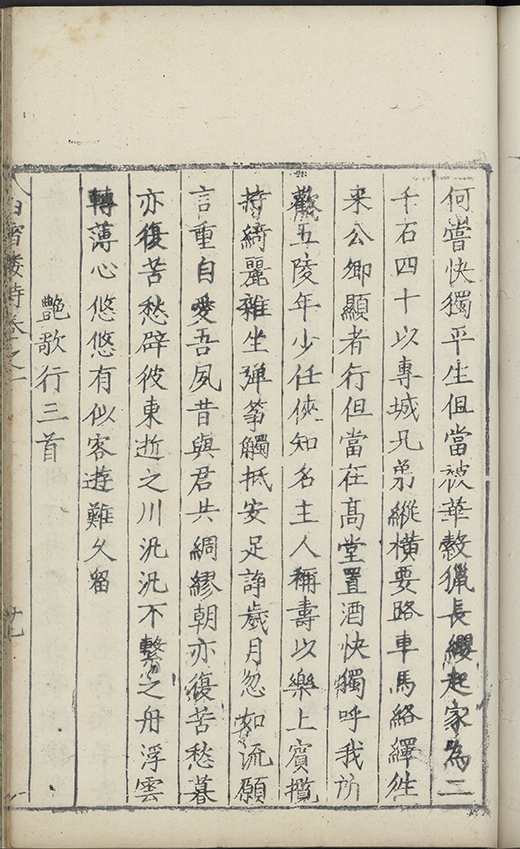 何嘗快獨平生但當被華轂獵長纓起家為二
千石四十以專城兄弟縱橫要路車馬絡繹往
来公卿顯者行但當在髙堂置酒快獨呼我所
歡五陵年少任俠知名主人稱壽以樂上賓攬
持綺麗雜坐彈箏觸抵安足諍歲月忽如流願
言重自愛吾夙昔與君共綢繆朝亦復苦愁暮
亦復苦愁辟彼東逝之川汎汎不繫之舟浮雲
轉薄心悠悠有似客遊難久留
艷歌行三首
白雪樓詩卷之一
廿九